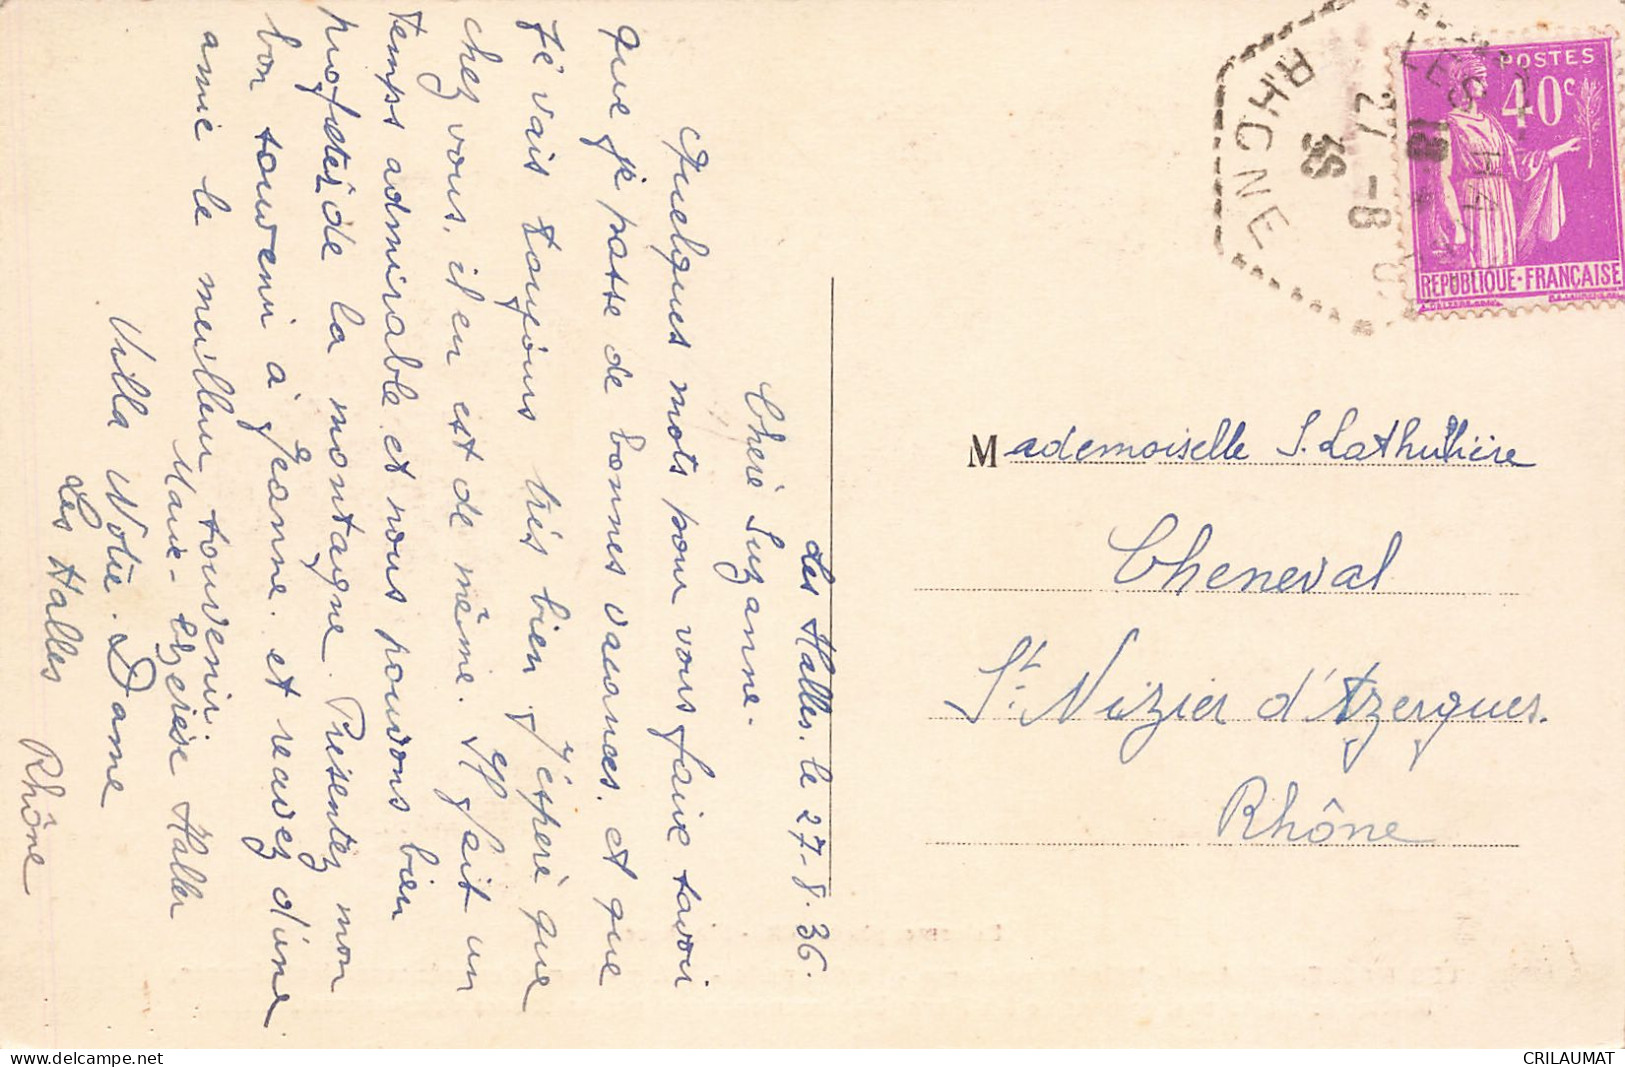 Les Halles. le 27-8.36.
Cheré Suzanne.
Quelques mots pour vous faire savoir
que je passe de bonnes vacances. et que
Je vais toujours très bien j'espère que
chez vous, il en est de même. Il fait un
temps admirable et nous pouvons bien
profiter de la montagne. Présentez mon
bon souvenir à Jeanne. et recevez d'une
amie le meilleur souvenir.
Marie-Thérèse Haller
Villa Notre-Dame
Les Halles
Rhône
POSTES
40c
REPUBLIQUE-FRANÇAISE
LES HALLES
27 -8
36
RHONE
Mademoiselle S. Lathuilière
Cheneval
St. Nizier d'Azergues.
Rhône
www.delcampe.net
CRILAUMAT